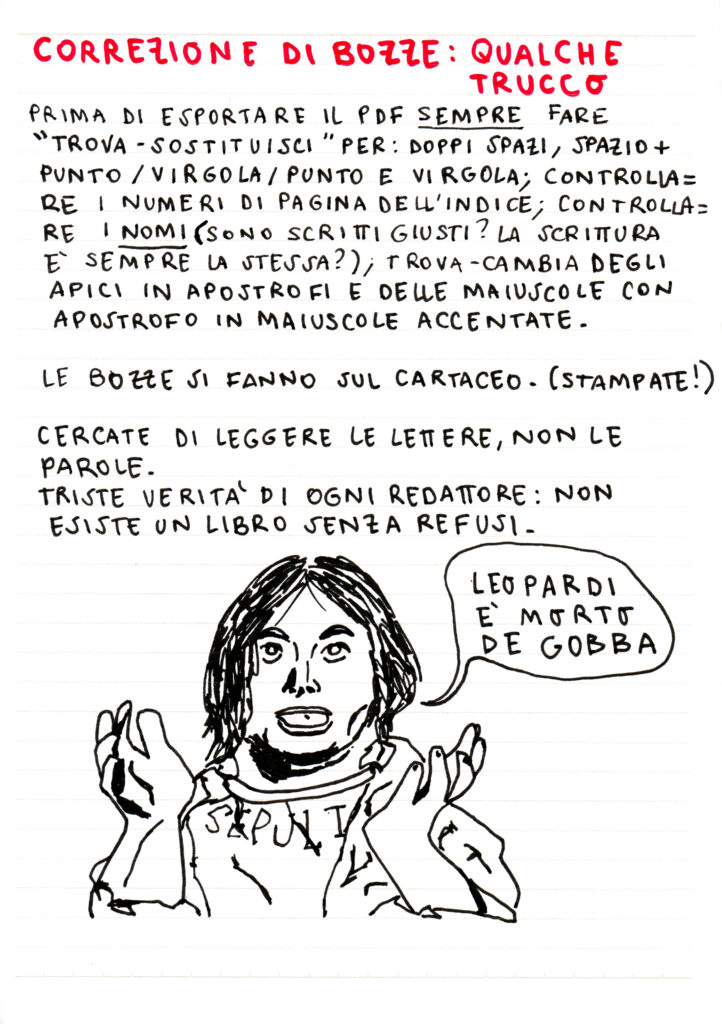 CORREZIONE DI BOZZE: QUALCHE
TRUCCO
PRIMA DI ESPORTARE IL PDF SEMPRE FARE
"TROVA-SOSTITUISCI" PER: DOPPI SPAZI, SPAZIO+
PUNTO/VIRGOLA/PUNTO E VIRGOLA; CONTROLLA=
RE I NUMERI DI PAGINA DELL'INDICE; CONTROLLA=
RE I NOMI (SONO SCRITTI GIUSTI? LA SCRITTURA
E' SEMPRE LA STESSA?); TROVA-CAMBIA DEGLI
APICI IN APOSTROFI E DELLE MAIUSCOLE CON
APOSTROFO IN MAIUSCOLE ACCENTATE.
LE BOZZE SI FANNO SUL CARTACEO. (STAMPATE!)
CERCATE DI LEGGERE LE LETTERE, NON LE
PAROLE.
TRISTE VERITÀ DI OGNI REDATTORE: NON
ESISTE UN LIBRO SENZA REFUSI.
LEOPARDI
È MORTO
DE GOBBA
SEPULT